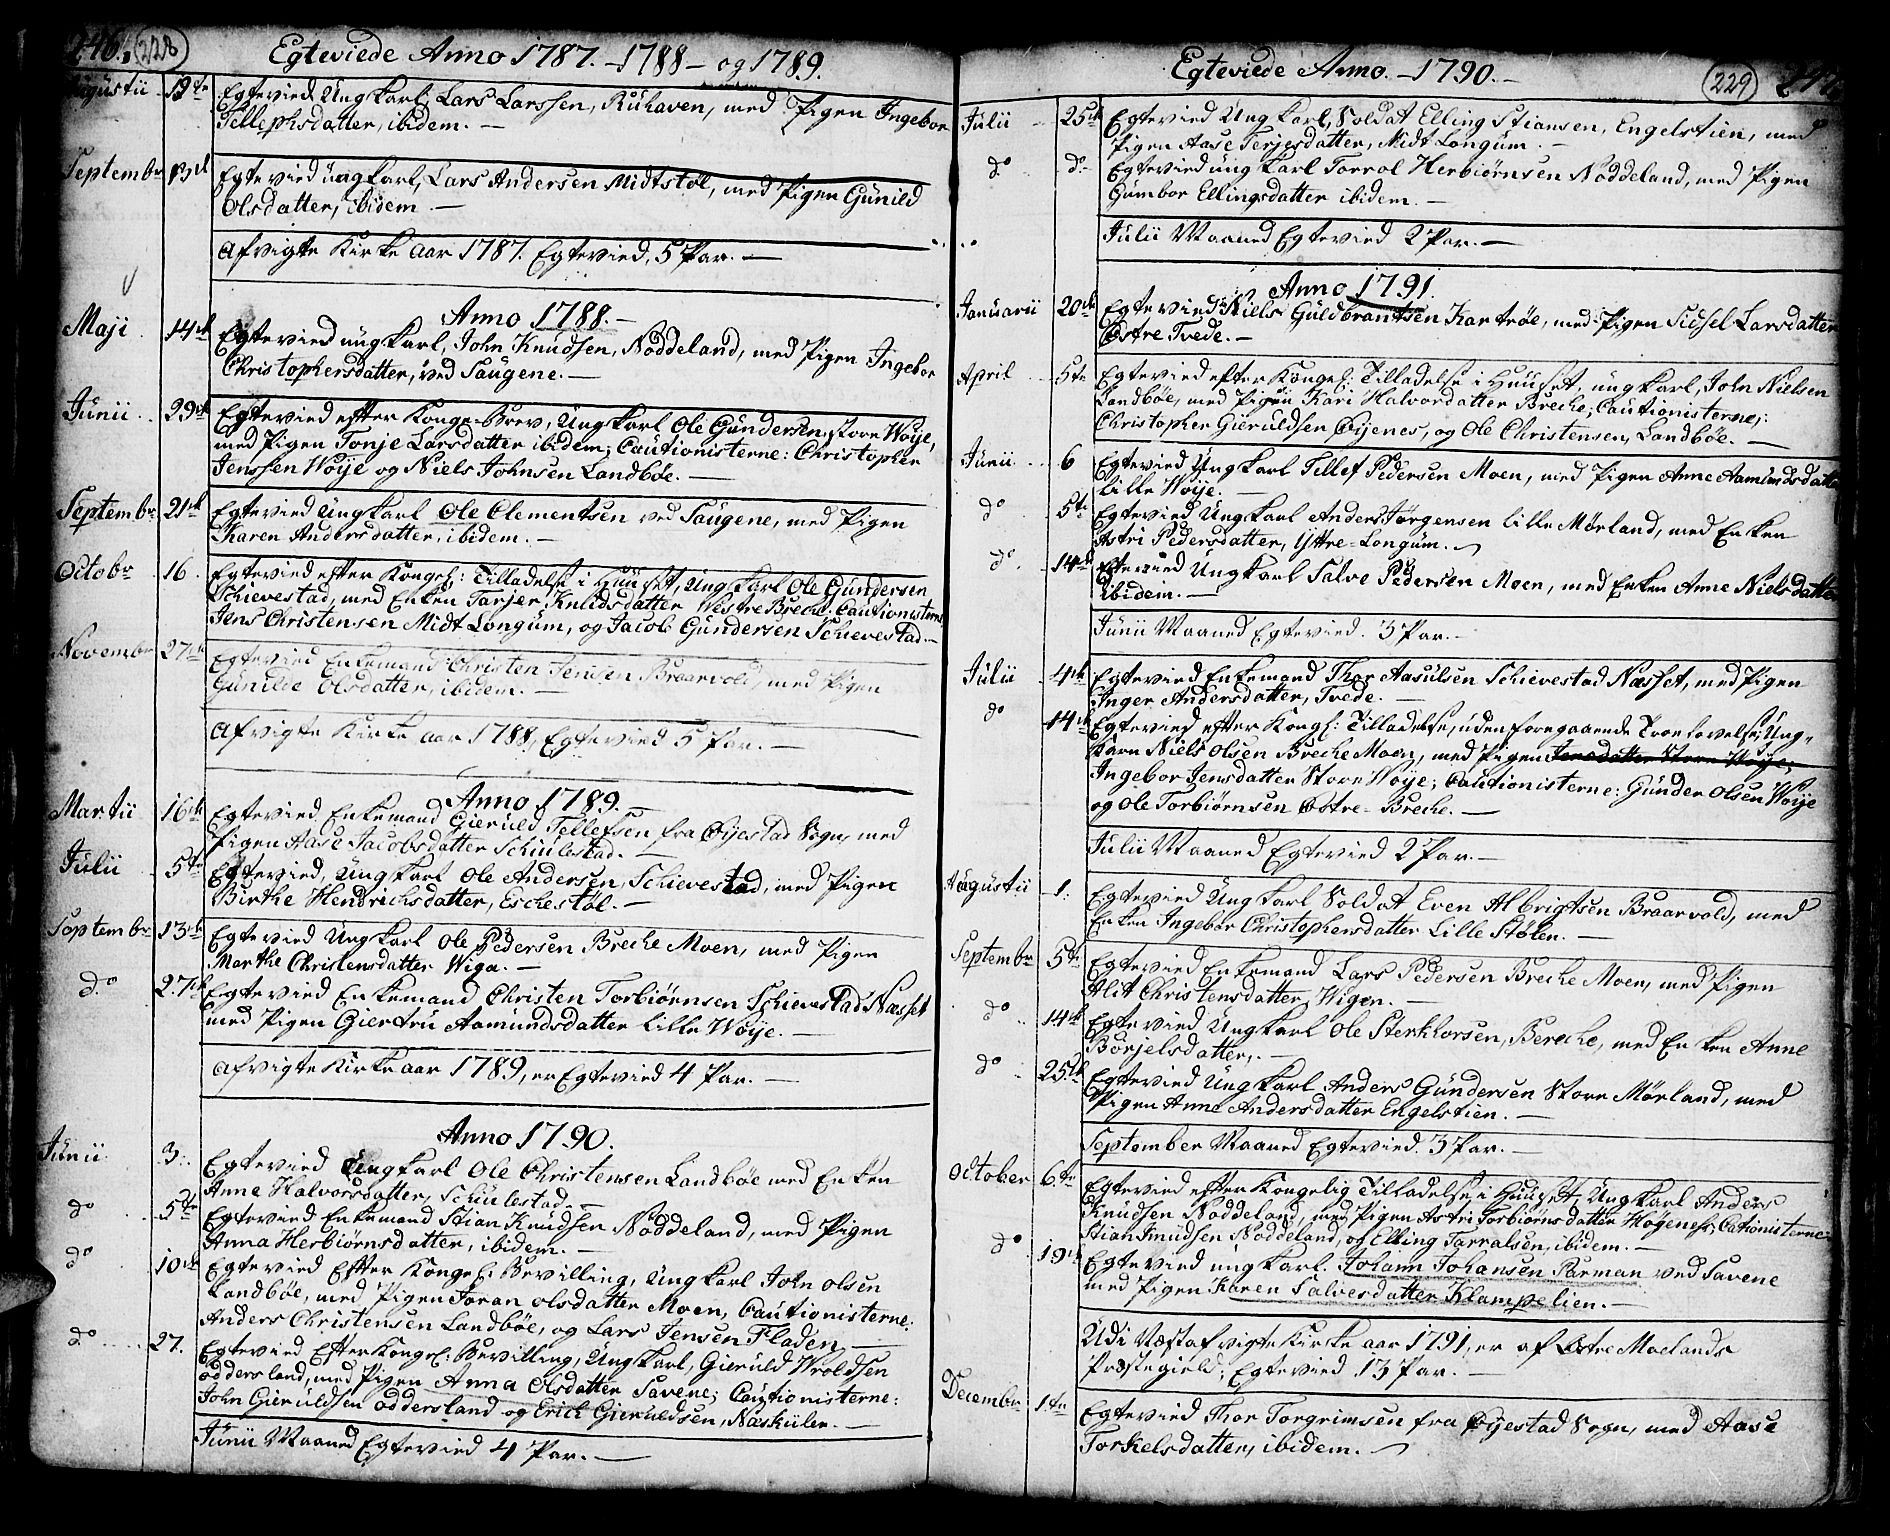 246. 228
Egteviede Anno 1787. - 1788 - og 1789.
Augustii 12te Egtevied Ung Karl, Lars Larssen, Ruhaven, med Pigen Ingebor
Tellephsdatter, ibidem. -
Septembr Egtevied ung Karl, Lars Andersen Midtstøl, med Pigen Gunild
Olsdatter, ibidem -
Afvigte Kirke Aar 1787. Egtevied, 5 Par. -
Anno 1788. -
Maji 14de Egtevied ung Karl, John Knudsen, Noddeland, med Pigen Ingebor
Christophersdatter, ved Saugene. -
Junii 29de Egtevied efter Konge-Brev, Ung Karl Ole Gundersen, store Woije,
med Pigen Tonje Larsdatter ibidem; Cautionisterne: Christopher
Jenssen Woije og Niels Johnsen Landbøe. -
Septembr 21de Egtevied Ung Karl Ole Clementsen ved Saugene, med Pigen
Karen Andersdatter, ibidem. -
Octobr 16. Egtevied efter Kongel: Tilladelse i Huuset, Ung Karl Ole Gundersen
Schievestad, med Enken Tarjer Knudsdatter Westre Breche. Cautionisterne
Jens Christensen Midt Longum, og Jacob Gundersen Schievestad. -
Novembr 27de Egtevied Enkemand Christen Jensen Braarvold, med Pigen
Gunilde Olsdatter, ibidem. -
Afvigte Kirke aar 1788, Egtevied 5 Par. -
Anno 1789. -
Martii 16de Egtevied Enkemand Gieruld Tellefsen fra Øijestad Sogn, med
Pigen Aase Jacobsdatter Schiulestad. -
Julii 5te Egtevied, Ung Karl Ole Andersen, Schievestad, med Pigen
Birthe Hendrichsdatter, Eschestøl. -
Septembr 13de Egtevied Ung Karl Ole Pedersen Breche Moen, med Pigen
Marthe Christensdatter Wiga. -
do 27de Egtevied Enkemand Christen Torbiørnsen Schievestad Næsset
med Pigen Giertru Aamundsdatter Lille Woije. -
Afvigte Kirke aar 1789, er Egtevied 4 Par. -
Anno 1790.
Junii 3. Egtevied Ung Karl Ole Christensen Landbøe med Enken
Anne Halvorsdatter, Schiulestad. -
do 5te Egtevied Enkemand Stian Knudsen Noddeland, med Pigen
Anna Herbiørnsdatter, ibidem. -
do 10de Egtevied Efter Kongel: Bevilling, Ung Karl John Olsen
Landbøe, med Pigen Joran Olsdatter Moen, Cautionisterne:
Anders Christensen Landbøe, og Lars Jensen Fladen -
do 27. Egtevied Efter Kongel: Bevilling, Ung Karl, Gieruld Wroldsen
Oddersland, med Pigen Anna Olsdatter Savene; Cautionisterne:
John Gieruldsen Oddersland og Erich Gieruldsen, Næskilen. -
Junii Maaned Egtevied 4 Par. -
Egteviede Anno. - 1790. -
229
Julii 25de Egtevied Ung Karl, Soldat Elling Stiansen, Engelstien, med
Pigen Aase Terjesdatter, Midt Longum. -
do do Egtevied ung Karl Torrol Herbiørnsen Noddeland, med Pigen
Gumbor Ellingsdatter ibidem. -
Julii Maaned Egtevied 2 Par. -
Anno 1791.
Januarii 20de Egtevied Niels Guldbrantsen Kartrøe, med Pigen Sidsel Larsdatter
Østre Tvede. -
April 5te Egtevied efter Kongel: Tilladelse i Huuset, ung Karl, John Nielsen
Landbøe, med Pigen Kari Halvordatter Breche, Cautionisterne;
Christopher Gieruldsen Øijenes, og Ole Christensen, Landbøe. -
Junii 6 Egtevied Ung Karl Tellef Pedersen Moen, med Pigen Anne Aamundsdatter
Lille Woije. -
do 5te Egtevied Ung Karl Anders Jørgensen Lille Mørland, med Enken
Astri Pedersdatter, Yttre-Longum. -
do 14de Egtevied Ung Karl Salve Pedersen Moen, med Enken Anne Nielsdatter
ibidem. -
Junii Maaned Egtevied. 3 Par. -
Julii 4de Egtevied Enkemand Thor Aasulsen Schievestad Næsset, med Pigen
Inger Andersdatter, Tvede. -
do 14de Egtevied efter Kongl: Tilladelse, uden foregaaende Troelovelse, Ung-
Karn Niels Olsen Breche Moen, med Pigen Jensdatter Store Woije;
Ingebor Jensdatter Store Woije; Cautionisterne: Gunder Olsen Woije
og Ole Torbiørnsen Østre-Breche. -
Julii Maaned Egtevied 2 Par. -
Augustii 1. Egtevied Ung Karl Soldat Even Albrigtsen Braarvold, med
Enken Ingebor Christophersdatter Lille Stølen. -
Septembr 5te Egtevied Enkemand Lars Pedersen Breche Moen, med Pigen
Alit Christensdatter, Wigen. -
do 14de Egtevied Ung Karl Ole Sterkhorsen, Bereche, med Enken Anne
Børjelsdatter, -
do 25de Egtevied Ung Karl Anders Gundersen Store Mørland, med
Pigen Anne Andersdatter Engelstien. -
September Maaned Egtevied. 3 Par. -
October 6te Egtevied efter Kongelig Tilladelse i Huuset, Ung Karl Anders
Knudsen Noddeland, med Pigen Astri Torbiørnsdatter Høgenes, Cationisterne:
Stian Knudsen Noddeland, og Elling Tarralsen, ibidem. -
do 19de Egtevied ung Karl. Johann Johansen Parman ved Savene
med Pigen Karen Salvesdatter Klampelien. -
Udi Næstafvigte Kirke aar 1791, er af Østre Moelands
Præstegield, Egtevied 13 Par. -
Decembr 1te Egtevied Thor Torgrimsen fra Øijestad Sogn, med Aase
Torkelsdatter, ibidem. -